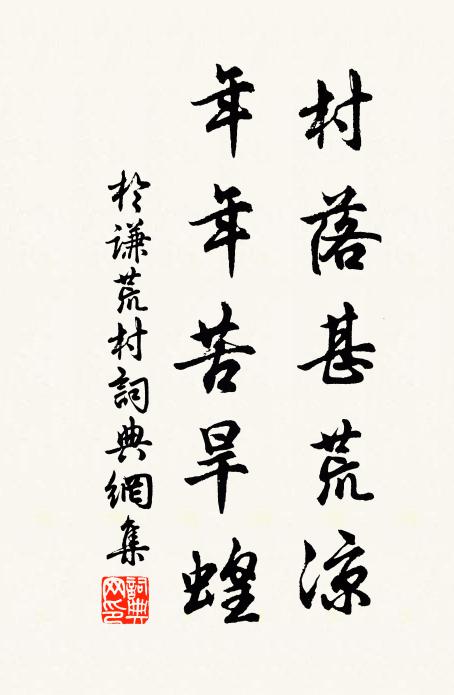 村落甚荒凉
年年苦旱蝗
於谦荒村詞典網集
詞典網印